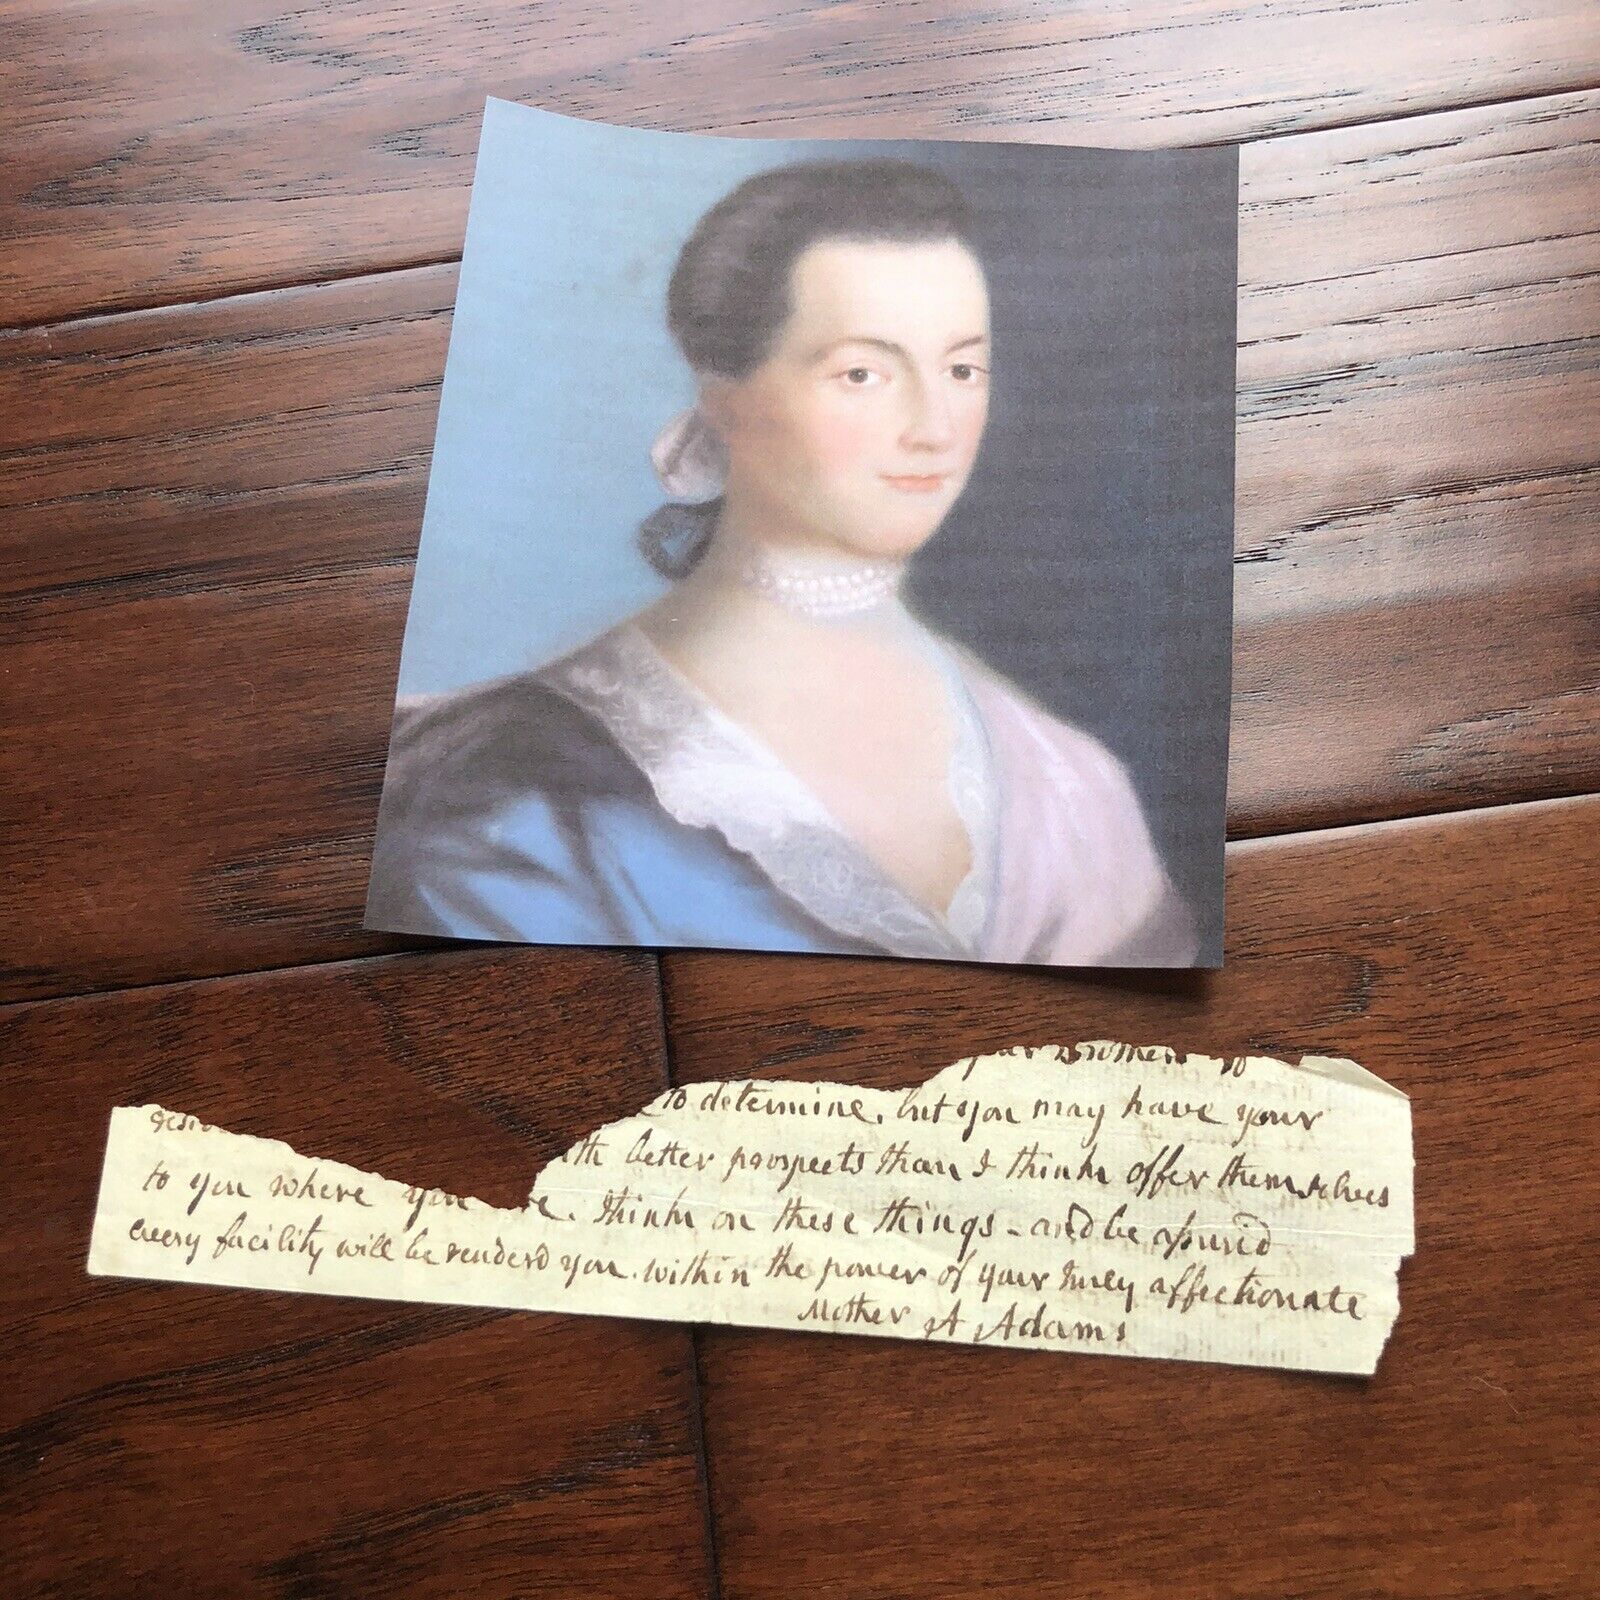 your
to determine, but you may have your
better prospects than I think offer themselves
to you where you Think on these things - and be assured
every facility will be renderd you. within the power of your truly affectionate
Mother A Adams